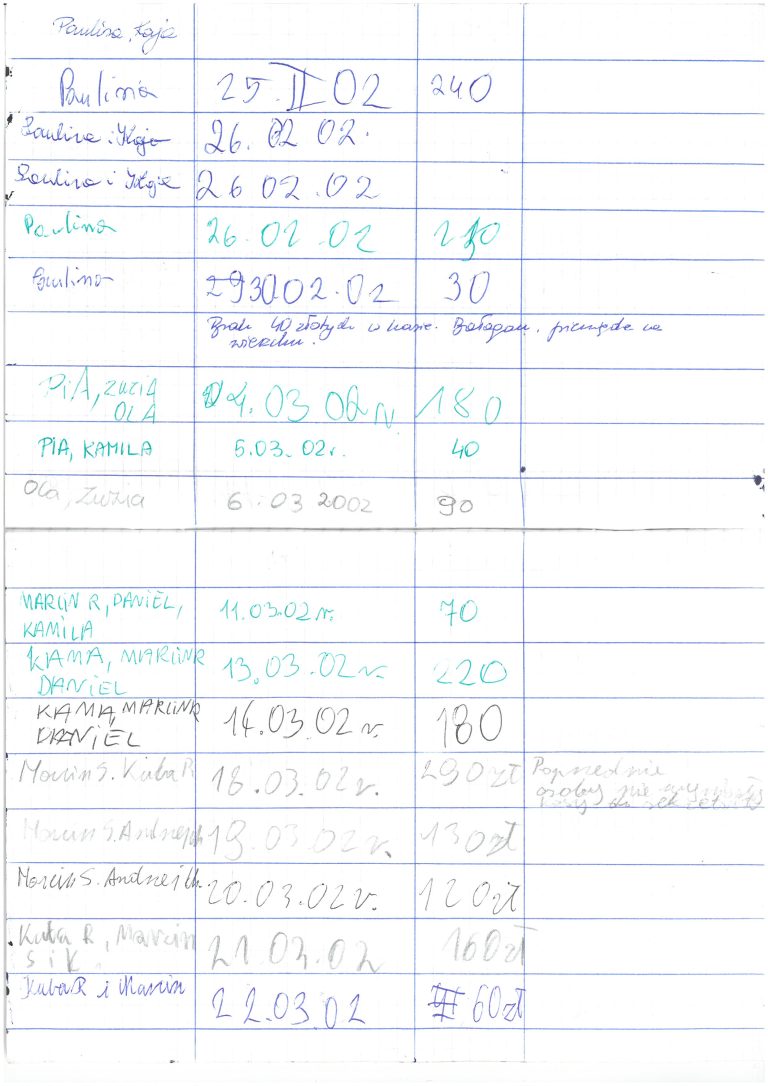 Paulina, Kaja
Paulina 25.II 02 240
Paulina i Kaja 26. 02 02.
Paulina i Kaja 26 02.02
Paulina 26.02.02 210
Paulina 30 02.02 30
Brak 40 złotych w kasie. Bałagan, pieniądze na
wierzchu.
PIA, ZUZIA
OLA 04.03 02 r 180
PIA, KAMILA 5.03.02r. 40
Ola, Zuzia 6.03 2002 90
MARCIN R, DANIEL,
KAMILA 11.03.02 r. 70
KAMA, MARCIN R
DANIEL 13.03.02 r. 220
KAMA, MARCIN R
DANIEL 14.03.02 r. 180
Marcin S. Kuba R 18.03.02 r. 290 zł Poprzednie
osoby nie
kasy do
Marcin S. Andrzej Ch 19.03.02 r. 130 zł
Marcin S. Andrzej Ch. 20.03.02 r. 120 zł
Kuba R, Marcin
S i K. 21.03.02 160 zł
Kuba R i Marcin 22.03.02 60 zł